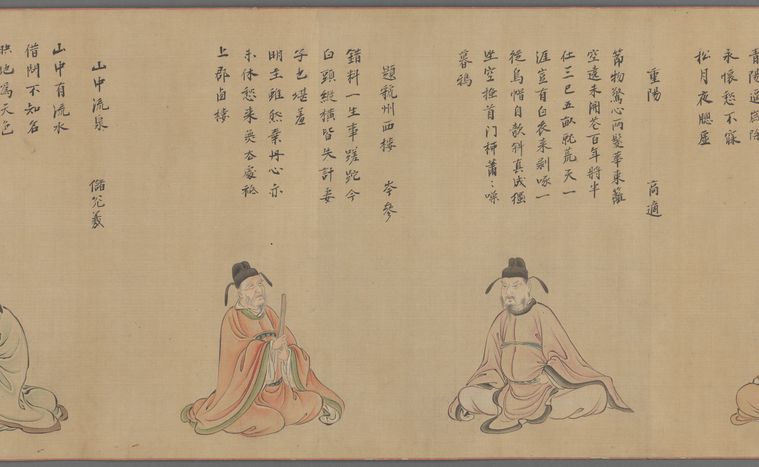 青陽逼歲除
永懷愁不寐
松月夜牕虛
重陽　高適
節物驚心兩鬢華東籬
空遶未開花百年將半
仕三已五畝就荒天一
涯豈有白衣來剥啄一
從烏帽自欹斜真成獨
坐空搔首門柳蕭〻噪
暮鴉
題虢州西樓　岑參
錯料一生事蹉跎今
白頭縱橫皆失計妻
子也堪羞
明主雖然棄丹心亦
未休愁來無去處祗
上郡西樓
山中流泉　儲光羲
山中有流水
借問不知名
映地為天色